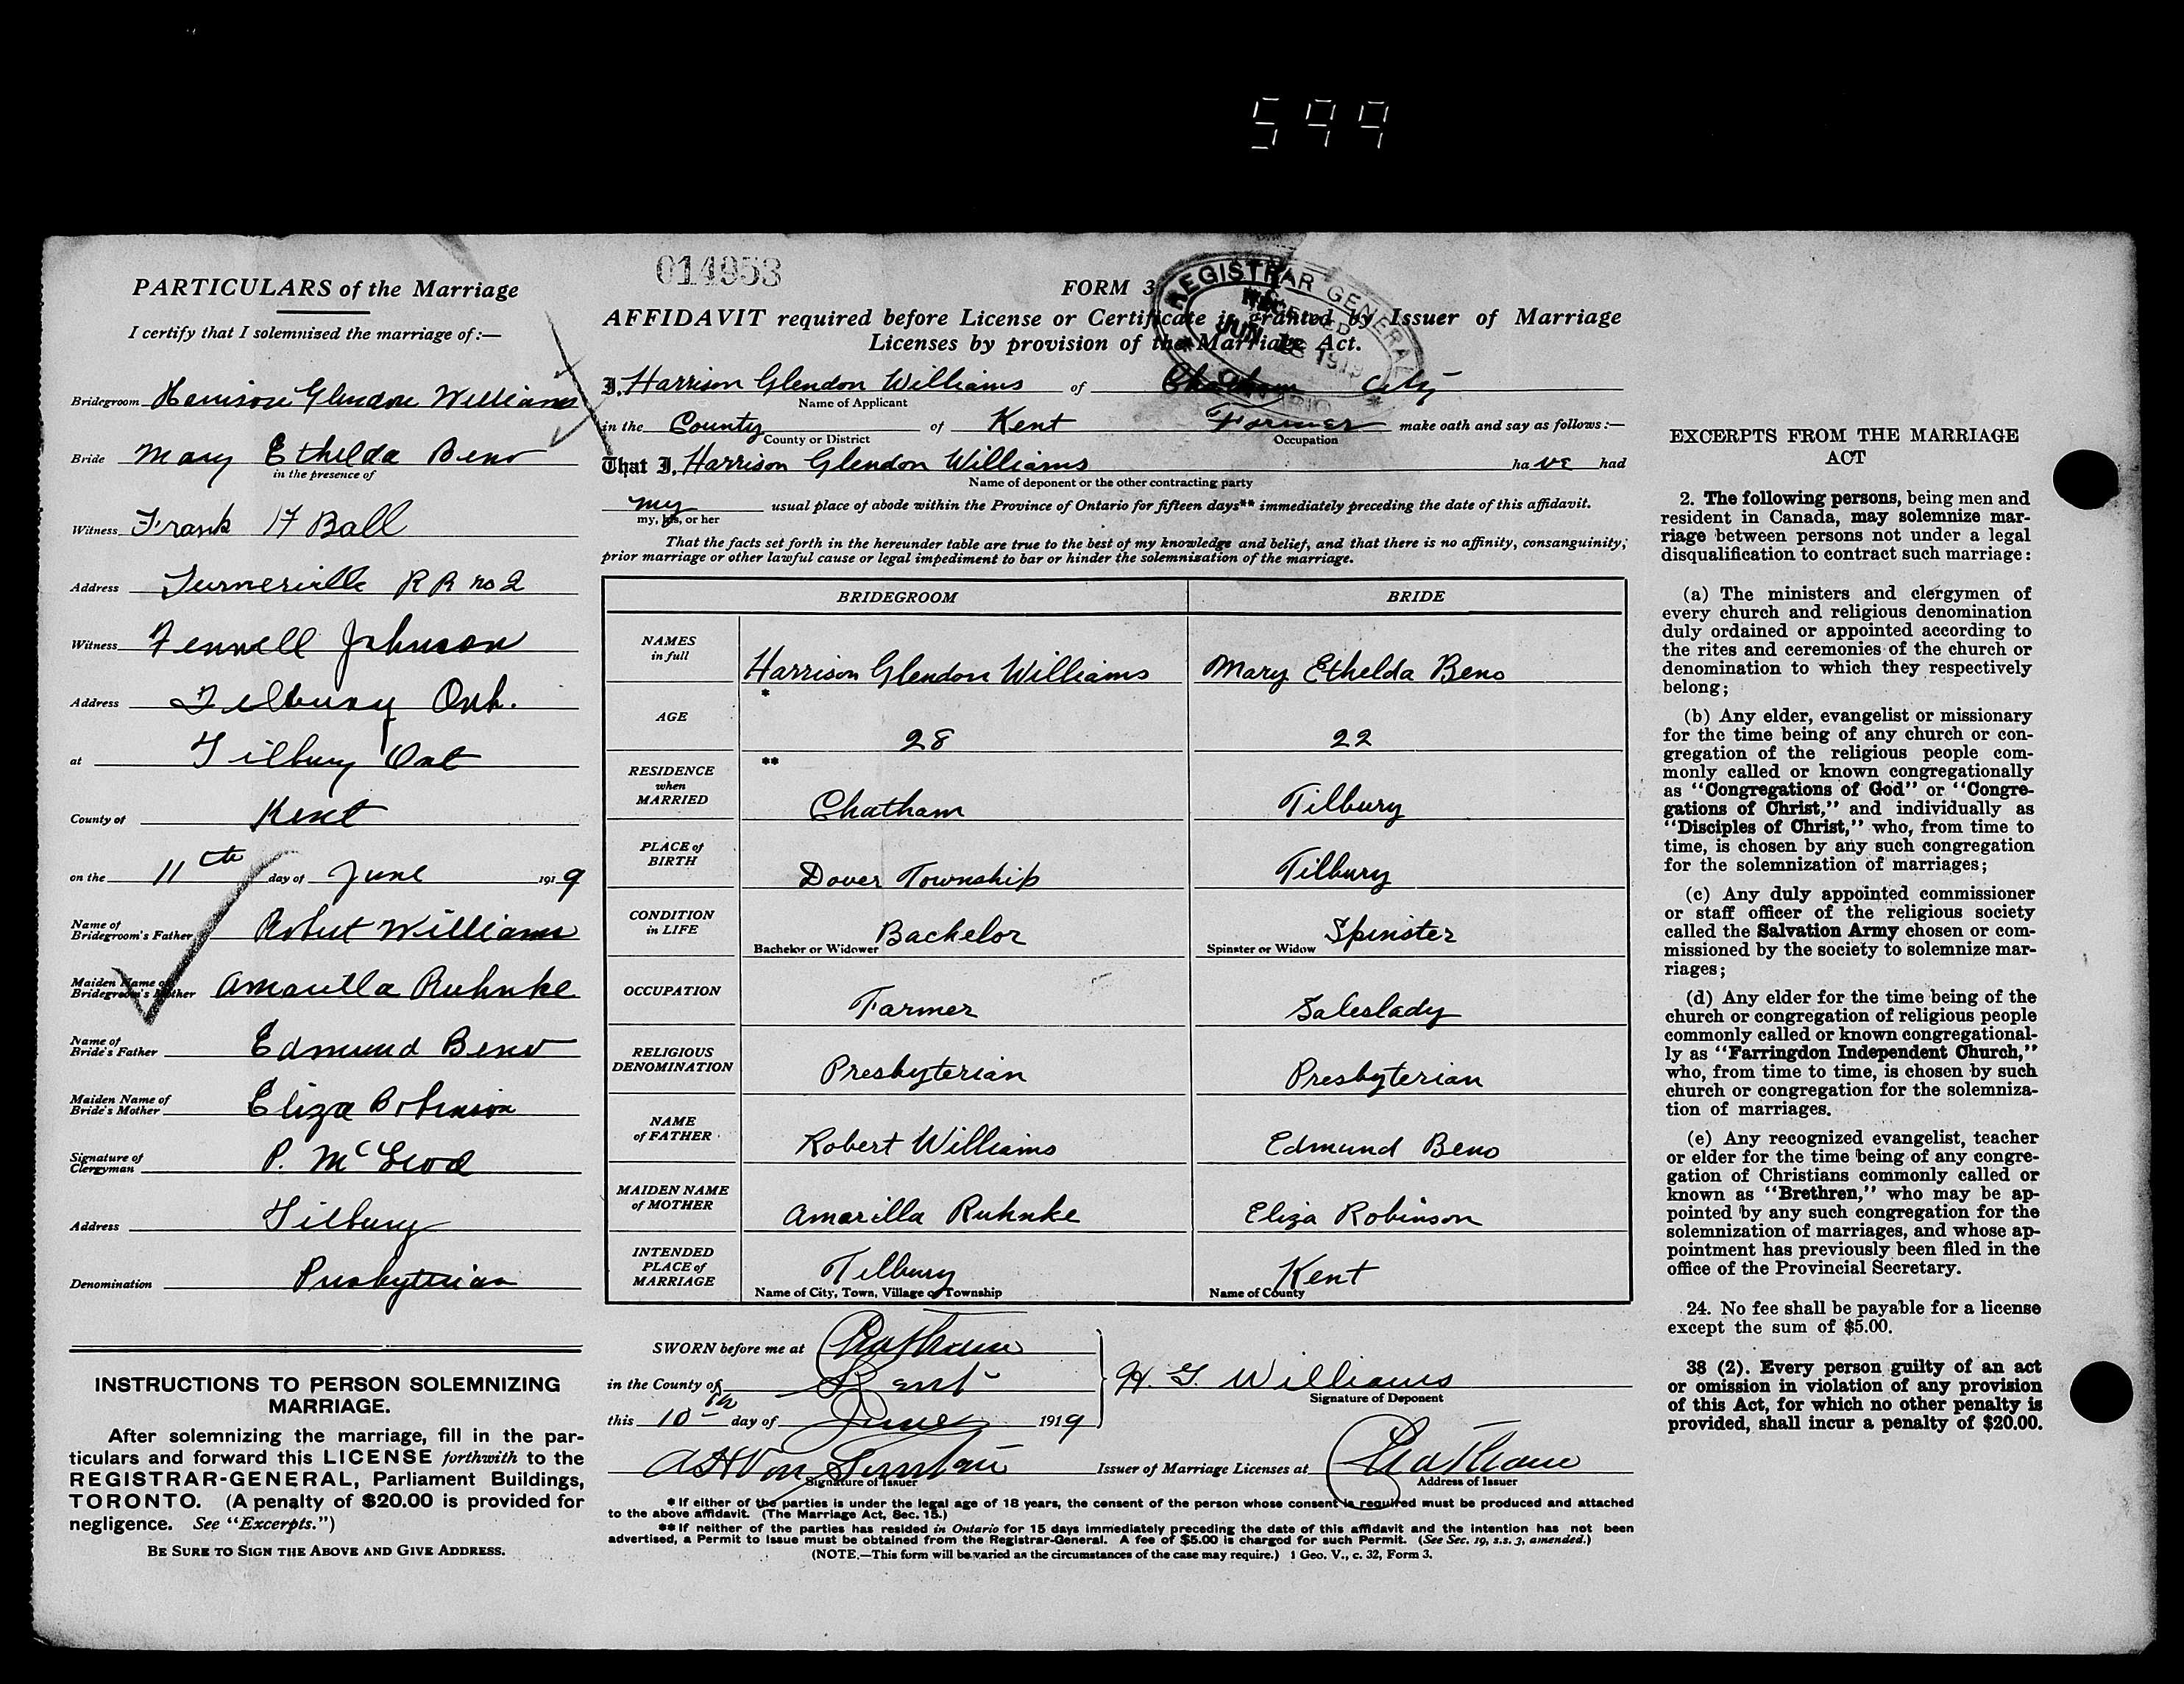 599
PARTICULARS of the Marriage
I certify that I solemnized the marriage of:—
Bridegroom Harrison Glendon Williams
Bride Mary Ethelda Beno
in the presence of
Witness Frank H Ball
Address Turnerville R R no 2
Witness Fennell Johnson
Address Tilbury Ont.
at Tilbury Ont
County of Kent
on the 11th day of June 1919
Name of
Bridegroom's Father Robert Williams
Maiden Name of
Bridegroom's Mother Amarilla Ruhnke
Name of
Bride's Father Edmund Beno
Maiden Name of
Bride's Mother Eliza Robinson
Signature of
Clergyman P. McLeod
Address Tilbury
Denomination Presbyterian
INSTRUCTIONS TO PERSON SOLEMNIZING
MARRIAGE.
After solemnizing the marriage, fill in the par-
ticulars and forward this LICENSE forthwith to the
REGISTRAR-GENERAL, Parliament Buildings,
TORONTO. (A penalty of $20.00 is provided for
negligence. See "Excerpts.")
BE SURE TO SIGN THE ABOVE AND GIVE ADDRESS.
014953
FORM 3
REGISTRAR GENERAL
RECEIVED
JUN 1919
ONTARIO
AFFIDAVIT required before License or Certificate is granted by Issuer of Marriage
Licenses by provision of the Marriage Act.
I, Harrison Glendon Williams of Chatham City
Name of Applicant
in the County of Kent Farmer make oath and say as follows:—
County or District Occupation
That I, Harrison Glendon Williams have had
Name of deponent or the other contracting party
my usual place of abode within the Province of Ontario for fifteen days** immediately preceding the date of this affidavit.
my, his, or her
That the facts set forth in the hereunder table are true to the best of my knowledge and belief, and that there is no affinity, consanguinity,
prior marriage or other lawful cause or legal impediment to bar or hinder the solemnization of the marriage.
BRIDEGROOM BRIDE
NAMES
in full
Harrison Glendon Williams Mary Ethelda Beno
*
AGE
28 22
**
RESIDENCE
when
MARRIED
Chatham Tilbury
PLACE of
BIRTH
Dover Township Tilbury
CONDITION
in LIFE
Bachelor or Widower Bachelor Spinster or Widow Spinster
OCCUPATION
Farmer Saleslady
RELIGIOUS
DENOMINATION
Presbyterian Presbyterian
NAME
of FATHER
Robert Williams Edmund Beno
MAIDEN NAME
of MOTHER
Amarilla Ruhnke Eliza Robinson
INTENDED
PLACE of
MARRIAGE
Tilbury Kent
Name of City, Town, Village or Township Name of County
SWORN before me at Chatham
in the County of Kent
H. G. Williams
Signature of Deponent
this 10th day of June 1919
Signature of Issuer
Issuer of Marriage Licenses at Chatham
Address of Issuer
* If either of the parties is under the legal age of 18 years, the consent of the person whose consent is required must be produced and attached
to the above affidavit. (The Marriage Act, Sec. 15.)
** If neither of the parties has resided in Ontario for 15 days immediately preceding the date of this affidavit and the intention has not been
advertised, a Permit to issue must be obtained from the Registrar-General. A fee of $5.00 is charged for such Permit. (See Sec. 19, s.s. 3, amended.)
(NOTE.—This form will be varied as the circumstances of the case may require.) 1 Geo. V., c. 32, Form 3.
EXCERPTS FROM THE MARRIAGE
ACT
2. The following persons, being men and
resident in Canada, may solemnize mar-
riage between persons not under a legal
disqualification to contract such marriage:
(a) The ministers and clergymen of
every church and religious denomination
duly ordained or appointed according to
the rites and ceremonies of the church or
denomination to which they respectively
belong;
(b) Any elder, evangelist or missionary
for the time being of any church or con-
gregation of the religious people com-
monly called or known congregationally
as "Congregations of God" or "Congre-
gations of Christ," and individually as
"Disciples of Christ," who, from time to
time, is chosen by any such congregation
for the solemnization of marriages;
(c) Any duly appointed commissioner
or staff officer of the religious society
called the Salvation Army chosen or com-
missioned by the society to solemnize mar-
riages;
(d) Any elder for the time being of the
church or congregation of religious people
commonly called or known congregational-
ly as "Farringdon Independent Church,"
who, from time to time, is chosen by such
church or congregation for the solemniza-
tion of marriages.
(e) Any recognized evangelist, teacher
or elder for the time being of any congre-
gation of Christians commonly called or
known as "Brethren," who may be ap-
pointed by any such congregation for the
solemnization of marriages, and whose ap-
pointment has previously been filed in the
office of the Provincial Secretary.
24. No fee shall be payable for a license
except the sum of $5.00.
38 (2). Every person guilty of an act
or omission in violation of any provision
of this Act, for which no other penalty is
provided, shall incur a penalty of $20.00.